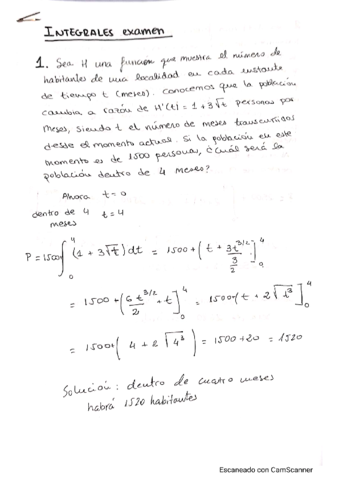 INTEGRALES examen
1. Sea H una funcion que muestra el número de
habitantes de una localidad en cada instante
de tiempo t (meses). Conocemos que la población
cambia a razón de H'(t) = 1 + 3√t personas por
meses, siendo t el número de meses transcurridos
desde el momento actual. Si la población en este
momento es de 1500 personas, ¿cuál será la
población dentro de 4 meses?
Ahora t = 0
dentro de 4 t = 4
meses
P = 1500 ∫₀⁴ (1 + 3√t) dt = 1500 + (t + 3t^3/2 / 3/2]₀⁴
= 1500 + (6t^3/2 / 2 + t]₀⁴ = 1500 + (t + 2√t³]₀⁴
= 1500 + (4 + 2√4³) = 1500 + 20 = 1520
Solución: dentro de cuatro meses
habrá 1520 habitantes
Escaneado con CamScanner